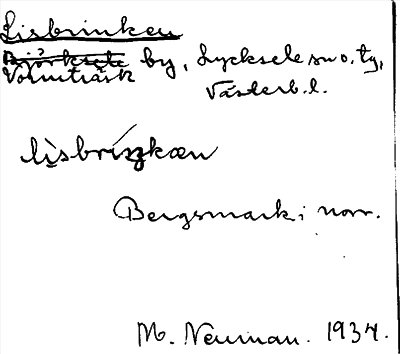 Lisbrinken
Björksele
Vormträsk by, Lycksele sn o. tg,
Västerb. l.
lisbriŋkæn
Bergsmark i norr.
M. Neuman. 1934.